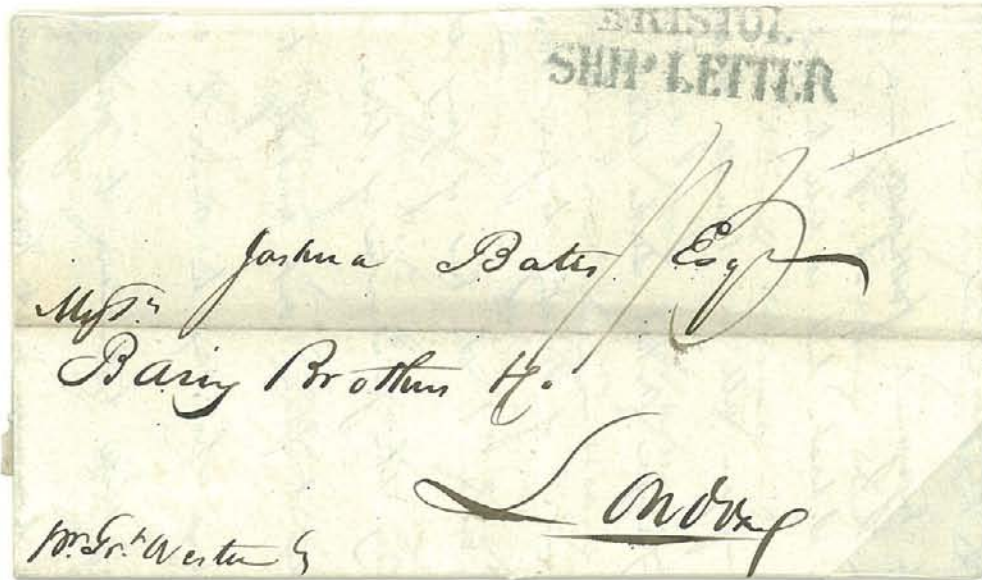 BRISTOL
SHIP LETTER
Joshua Bates Esqr
Messrs
Baring Brothers & Co.
London
pr Grt Western